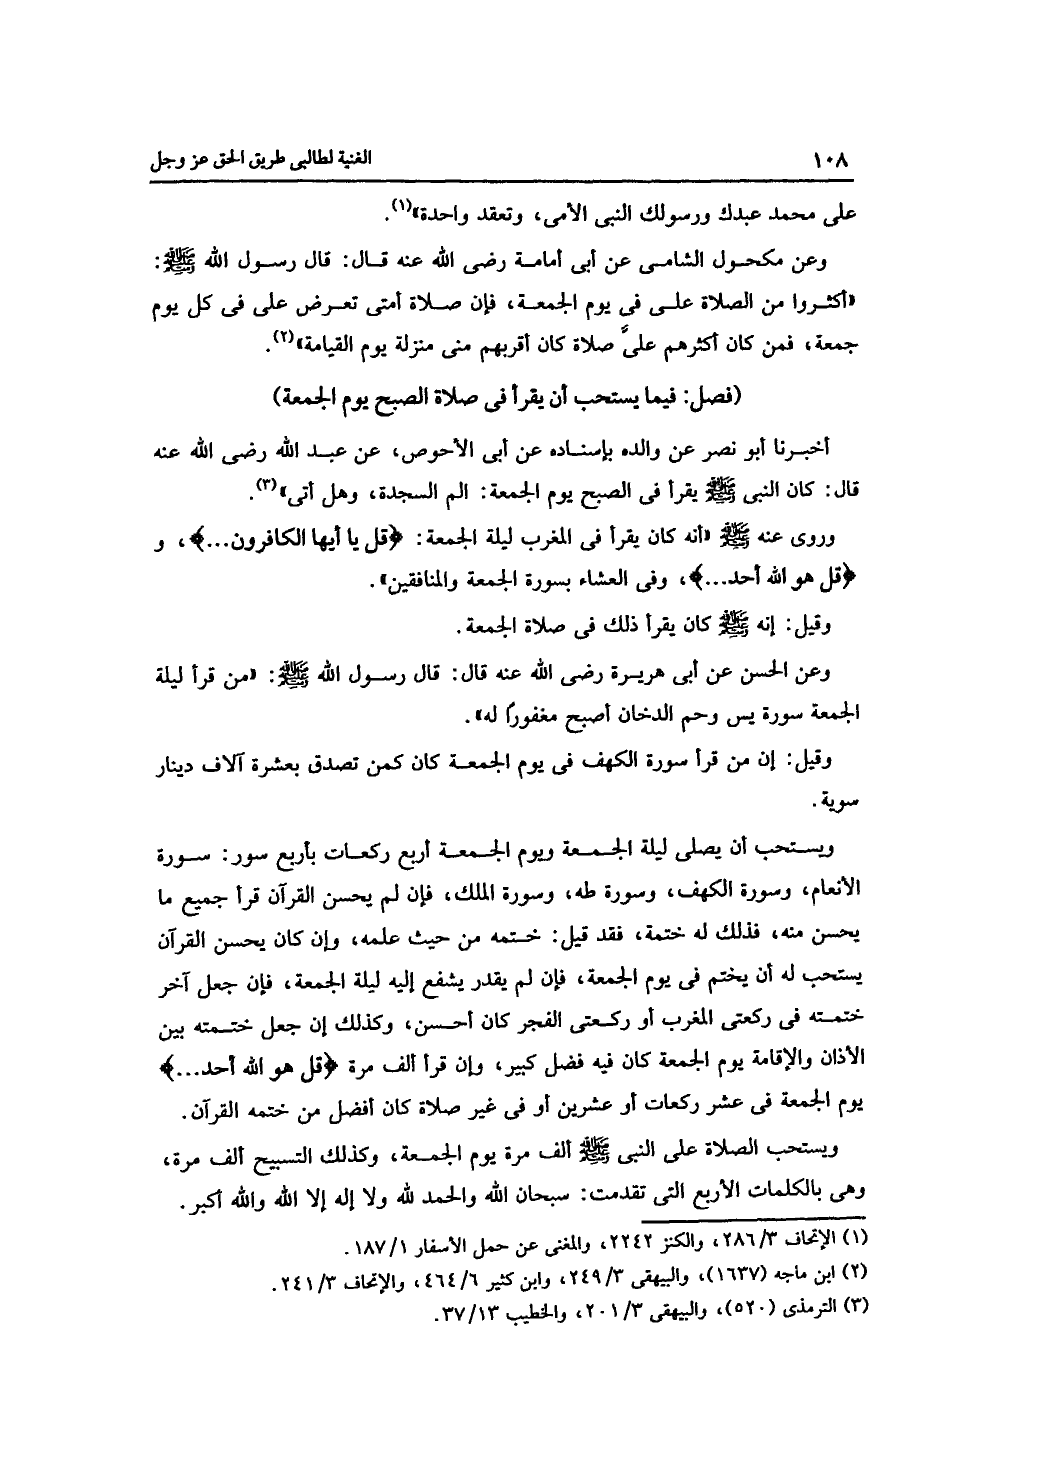 ١٠٨ الغنية لطالبى طريق الحق عز وجل
على محمد عبدك ورسولك النبى الأمى، وتعقد واحدة»(١).
وعن مكحول الشامى عن أبى أمامة رضى الله عنه قال: قال رسول الله ﷺ:
«أكثروا من الصلاة على فى يوم الجمعة، فإن صلاة أمتى تعرض على فى كل يوم
جمعة، فمن كان أكثرهم علىَّ صلاة كان أقربهم منى منزلة يوم القيامة»(٢).
(فصل: فيما يستحب أن يقرأ فى صلاة الصبح يوم الجمعة)
أخبرنا أبو نصر عن والده بإسناده عن أبى الأحوص، عن عبد الله رضى الله عنه
قال: كان النبى ﷺ يقرأ فى الصبح يوم الجمعة: الم السجدة، وهل أتى»(٣).
وروى عنه ﷺ «أنه كان يقرأ فى المغرب ليلة الجمعة: ﴿قل يا أيها الكافرون...﴾، و
﴿قل هو الله أحد...﴾، وفى العشاء بسورة الجمعة والمنافقين».
وقيل: إنه ﷺ كان يقرأ ذلك فى صلاة الجمعة.
وعن الحسن عن أبى هريرة رضى الله عنه قال: قال رسول الله ﷺ: «من قرأ ليلة
الجمعة سورة يس وحم الدخان أصبح مغفورًا له».
وقيل: إن من قرأ سورة الكهف فى يوم الجمعة كان كمن تصدق بعشرة آلاف دينار
سوية.
ويستحب أن يصلى ليلة الجمعة ويوم الجمعة أربع ركعات بأربع سور: سورة
الأنعام، وسورة الكهف، وسورة طه، وسورة الملك، فإن لم يحسن القرآن قرأ جميع ما
يحسن منه، فذلك له ختمة، فقد قيل: ختمه من حيث علمه، وإن كان يحسن القرآن
يستحب له أن يختم فى يوم الجمعة، فإن لم يقدر يشفع إليه ليلة الجمعة، فإن جعل آخر
ختمته فى ركعتى المغرب أو ركعتى الفجر كان أحسن، وكذلك إن جعل ختمته بين
الأذان والإقامة يوم الجمعة كان فيه فضل كبير، وإن قرأ ألف مرة ﴿قل هو الله أحد...﴾
يوم الجمعة فى عشر ركعات أو عشرين أو فى غير صلاة كان أفضل من ختمه القرآن.
ويستحب الصلاة على النبى ﷺ ألف مرة يوم الجمعة، وكذلك التسبيح ألف مرة،
وهى بالكلمات الأربع التى تقدمت: سبحان الله والحمد لله ولا إله إلا الله والله أكبر.
(١) الإتحاف ٢٨٦/٣، والكنز ٢٢٤٢، والمغنى عن حمل الأسفار ١٨٧/١.
(٢) ابن ماجه (١٦٣٧)، والبيهقى ٢٤٩/٣، وابن كثير ٤٦٤/٦، والإتحاف ٢٤١/٣.
(٣) الترمذى (٥٢٠)، والبيهقى ٢٠١/٣، والخطيب ٣٧/١٣.